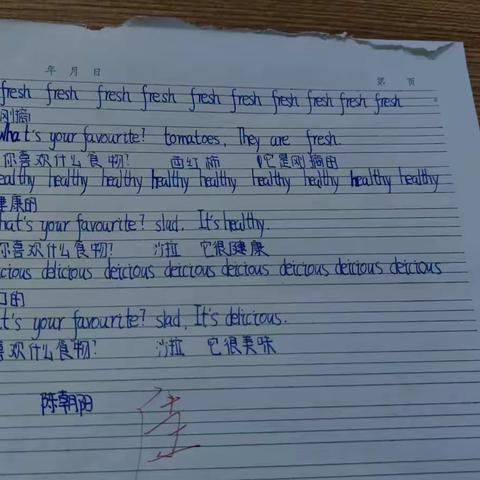 年 月 日 第 页
fresh fresh fresh fresh fresh fresh fresh fresh fresh fresh
刚摘
what's your favourite? tomatoes, They are fresh.
你喜欢什么食物? 西红柿 它是刚摘的
ealthy healthy healthy healthy healthy healthy healthy healthy healthy
健康的
hat's your favourite? slad, It's healthy.
你喜欢什么食物? 沙拉 它很健康
cious delicious deicious deicious deicious deicious deicious deicious
口的
t's your favourite? slad, It's delicious.
喜欢什么食物? 沙拉 它很美味
陈朝阳